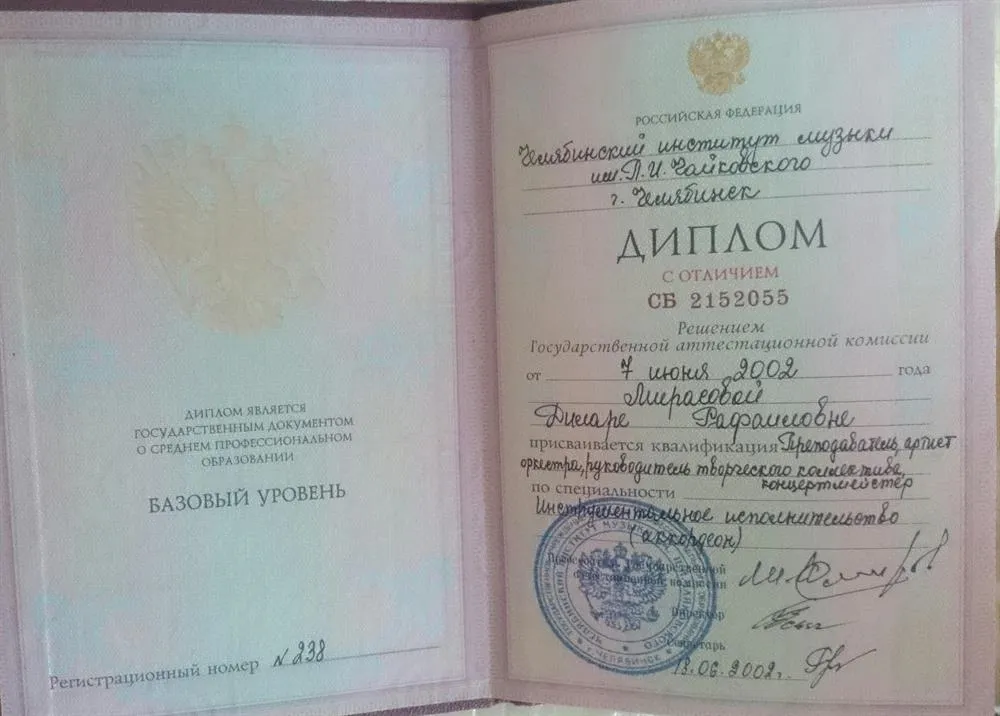 ДИПЛОМ ЯВЛЯЕТСЯ
ГОСУДАРСТВЕННЫМ ДОКУМЕНТОМ
О СРЕДНЕМ ПРОФЕССИОНАЛЬНОМ
ОБРАЗОВАНИИ
БАЗОВЫЙ УРОВЕНЬ
Регистрационный номер N 238
РОССИЙСКАЯ ФЕДЕРАЦИЯ
Челябинский институт музыки
им. П.И. Чайковского
г. Челябинск
ДИПЛОМ
С ОТЛИЧИЕМ
СБ 2152055
Решением
Государственной аттестационной комиссии
от 7 июня 2002 года
Мирасовой
Диларе Рафаиловне
присваивается квалификация Преподаватель, артист
оркестра, руководитель творческого коллектива,
концертмейстер
по специальности
Инструментальное исполнительство
(аккордеон)
Председатель Государственной
аттестационной комиссии
Директор
Секретарь
18.06.2002г.
г. ЧЕЛЯБИНСК